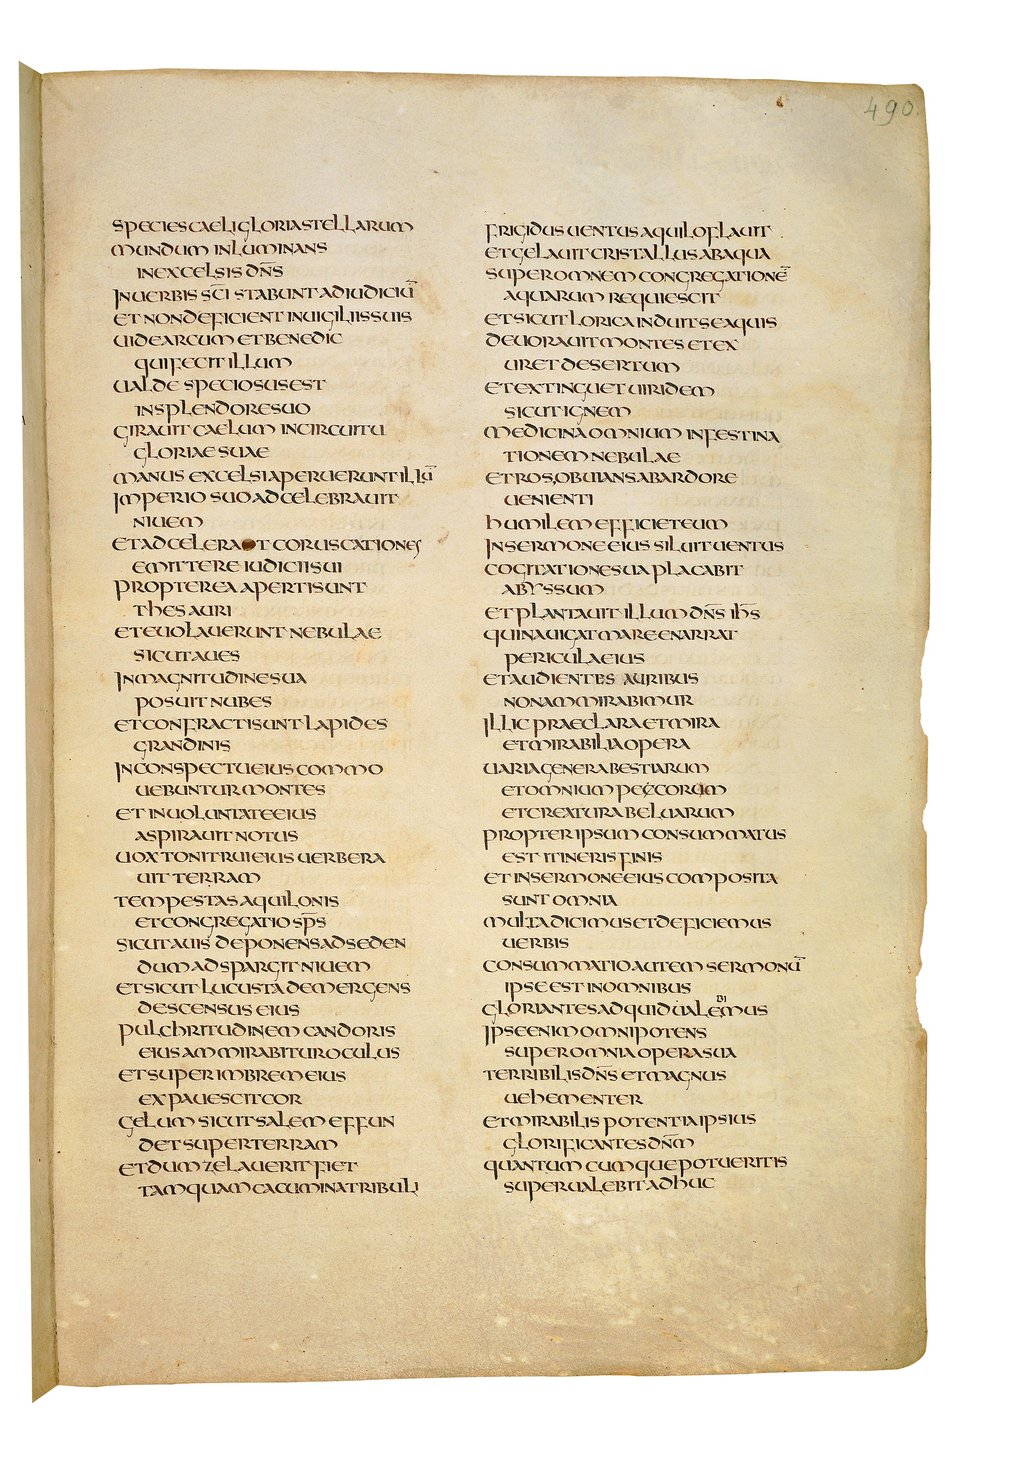 490.
SPECIES CAELI GLORIA STELLARUM
MUNDUM INLUMINANS
IN EXCELSIS DN̄S
IN UERBIS SC̄I STABUNT AD IUDICIŪ
ET NON DEFICIENT IN UIGILIIS SUIS
UIDE ARCUM ET BENEDIC
QUI FECIT ILLUM
UALDE SPECIOSUS EST
IN SPLENDORE SUO
GIRAUIT CAELUM IN CIRCUITU
GLORIAE SUAE
MANUS EXCELSI APERUERUNT ILLŪ
IMPERIO SUO ADCELEBRAUIT
NIUEM
ET ADCELERA T CORUSCATIONES
EMITTERE IUDICII SUI
PROPTEREA APERTI SUNT
THESAURI
ET EUOLAUERUNT NEBULAE
SICUT AUES
IN MAGNITUDINE SUA
POSUIT NUBES
ET CONFRACTI SUNT LAPIDES
GRANDINIS
IN CONSPECTU EIUS COMMO
UEBUNTUR MONTES
ET IN UOLUNTATE EIUS
ASPIRAUIT NOTUS
UOX TONITRUI EIUS UERBERA
UIT TERRAM
TEMPESTAS AQUILONIS
ET CONGREGATIO SP̄S
SICUT AUIS DEPONENS AD SEDEN
DUM ADSPARGIT NIUEM
ET SICUT LUCUSTA DEMERGENS
DESCENSUS EIUS
PULCHRITUDINEM CANDORIS
EIUS AMMIRABITUR OCULUS
ET SUPER IMBREM EIUS
EXPAUESCIT COR
GELUM SICUT SALEM EFFUN
DET SUPER TERRAM
ET DUM ZELAUERIT FIET
TAMQUAM CACUMINA TRIBULI
FRIGIDUS UENTUS AQUILO FLAUIT
ET GELAUIT CRISTALLUS AB AQUA
SUPER OMNEM CONGREGATIONĒ
AQUARUM REQUIESCIT
ET SICUT LORICA INDUIT SE AQUIS
DEUORAUIT MONTES ET EX
URET DESERTUM
ET EXTINGUET UIRIDEM
SICUT IGNEM
MEDICINA OMNIUM IN FESTINA
TIONEM NEBULAE
ET ROS OBUIANS AB ARDORE
UENIENTI
HUMILEM EFFICIET EUM
IN SERMONE EIUS SILUIT UENTUS
COGITATIONE SUA PLACABIT
ABYSSUM
ET PLANTAUIT ILLUM DN̄S IH̄S
QUI NAUIGAT MARE ENARRAT
PERICULA EIUS
ET AUDIENTES AURIBUS
NON AMMIRABIMUR
ILLIC PRAECLARA ET MIRA
ET MIRABILIA OPERA
UARIA GENERA BESTIARUM
ET OMNIUM PECCORUM
ET CREATURA BELUARUM
PROPTER IPSUM CONSUMMATUS
EST ITINERIS FINIS
ET IN SERMONE EIUS COMPOSITA
SUNT OMNIA
MULTA DICIMUS ET DEFICIEMUS
UERBIS
CONSUMMATIO AUTEM SERMONŪ
IPSE EST IN OMNIBUS
GLORIANTES AD QUID UALEBIMUS
IPSE ENIM OMNIPOTENS
SUPER OMNIA OPERA SUA
TERRIBILIS DN̄S ET MAGNUS
UEHEMENTER
ET MIRABILIS POTENTIA IPSIUS
GLORIFICANTES DN̄M
QUANTUMCUMQUE POTUERITIS
SUPERUALEBIT ADHUC